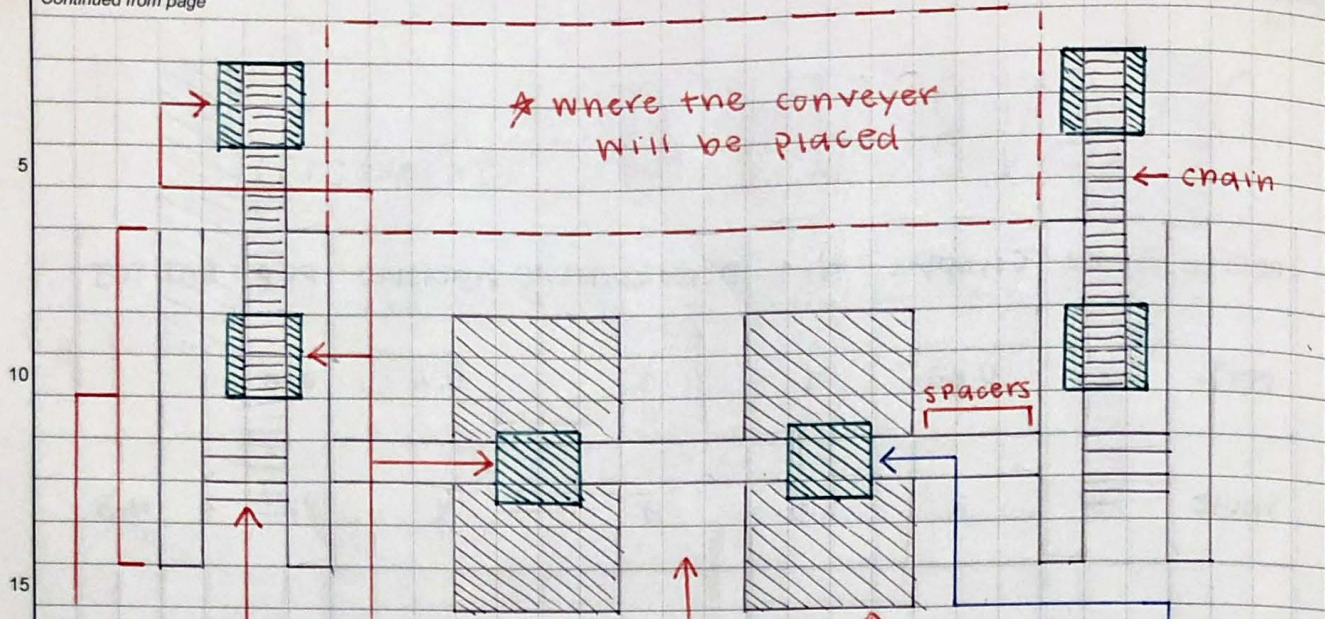 Continued from page
☆ where the conveyer
will be placed
5
← chain
10
spacers
15